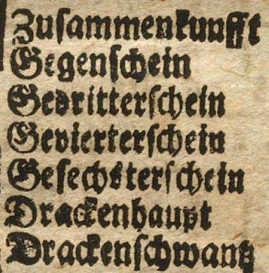 Zusammenkunfft
Gegenschein
Gedritterschein
Gevierterschein
Gesechsterschein
Drackenhaupt
Drackenschwantz